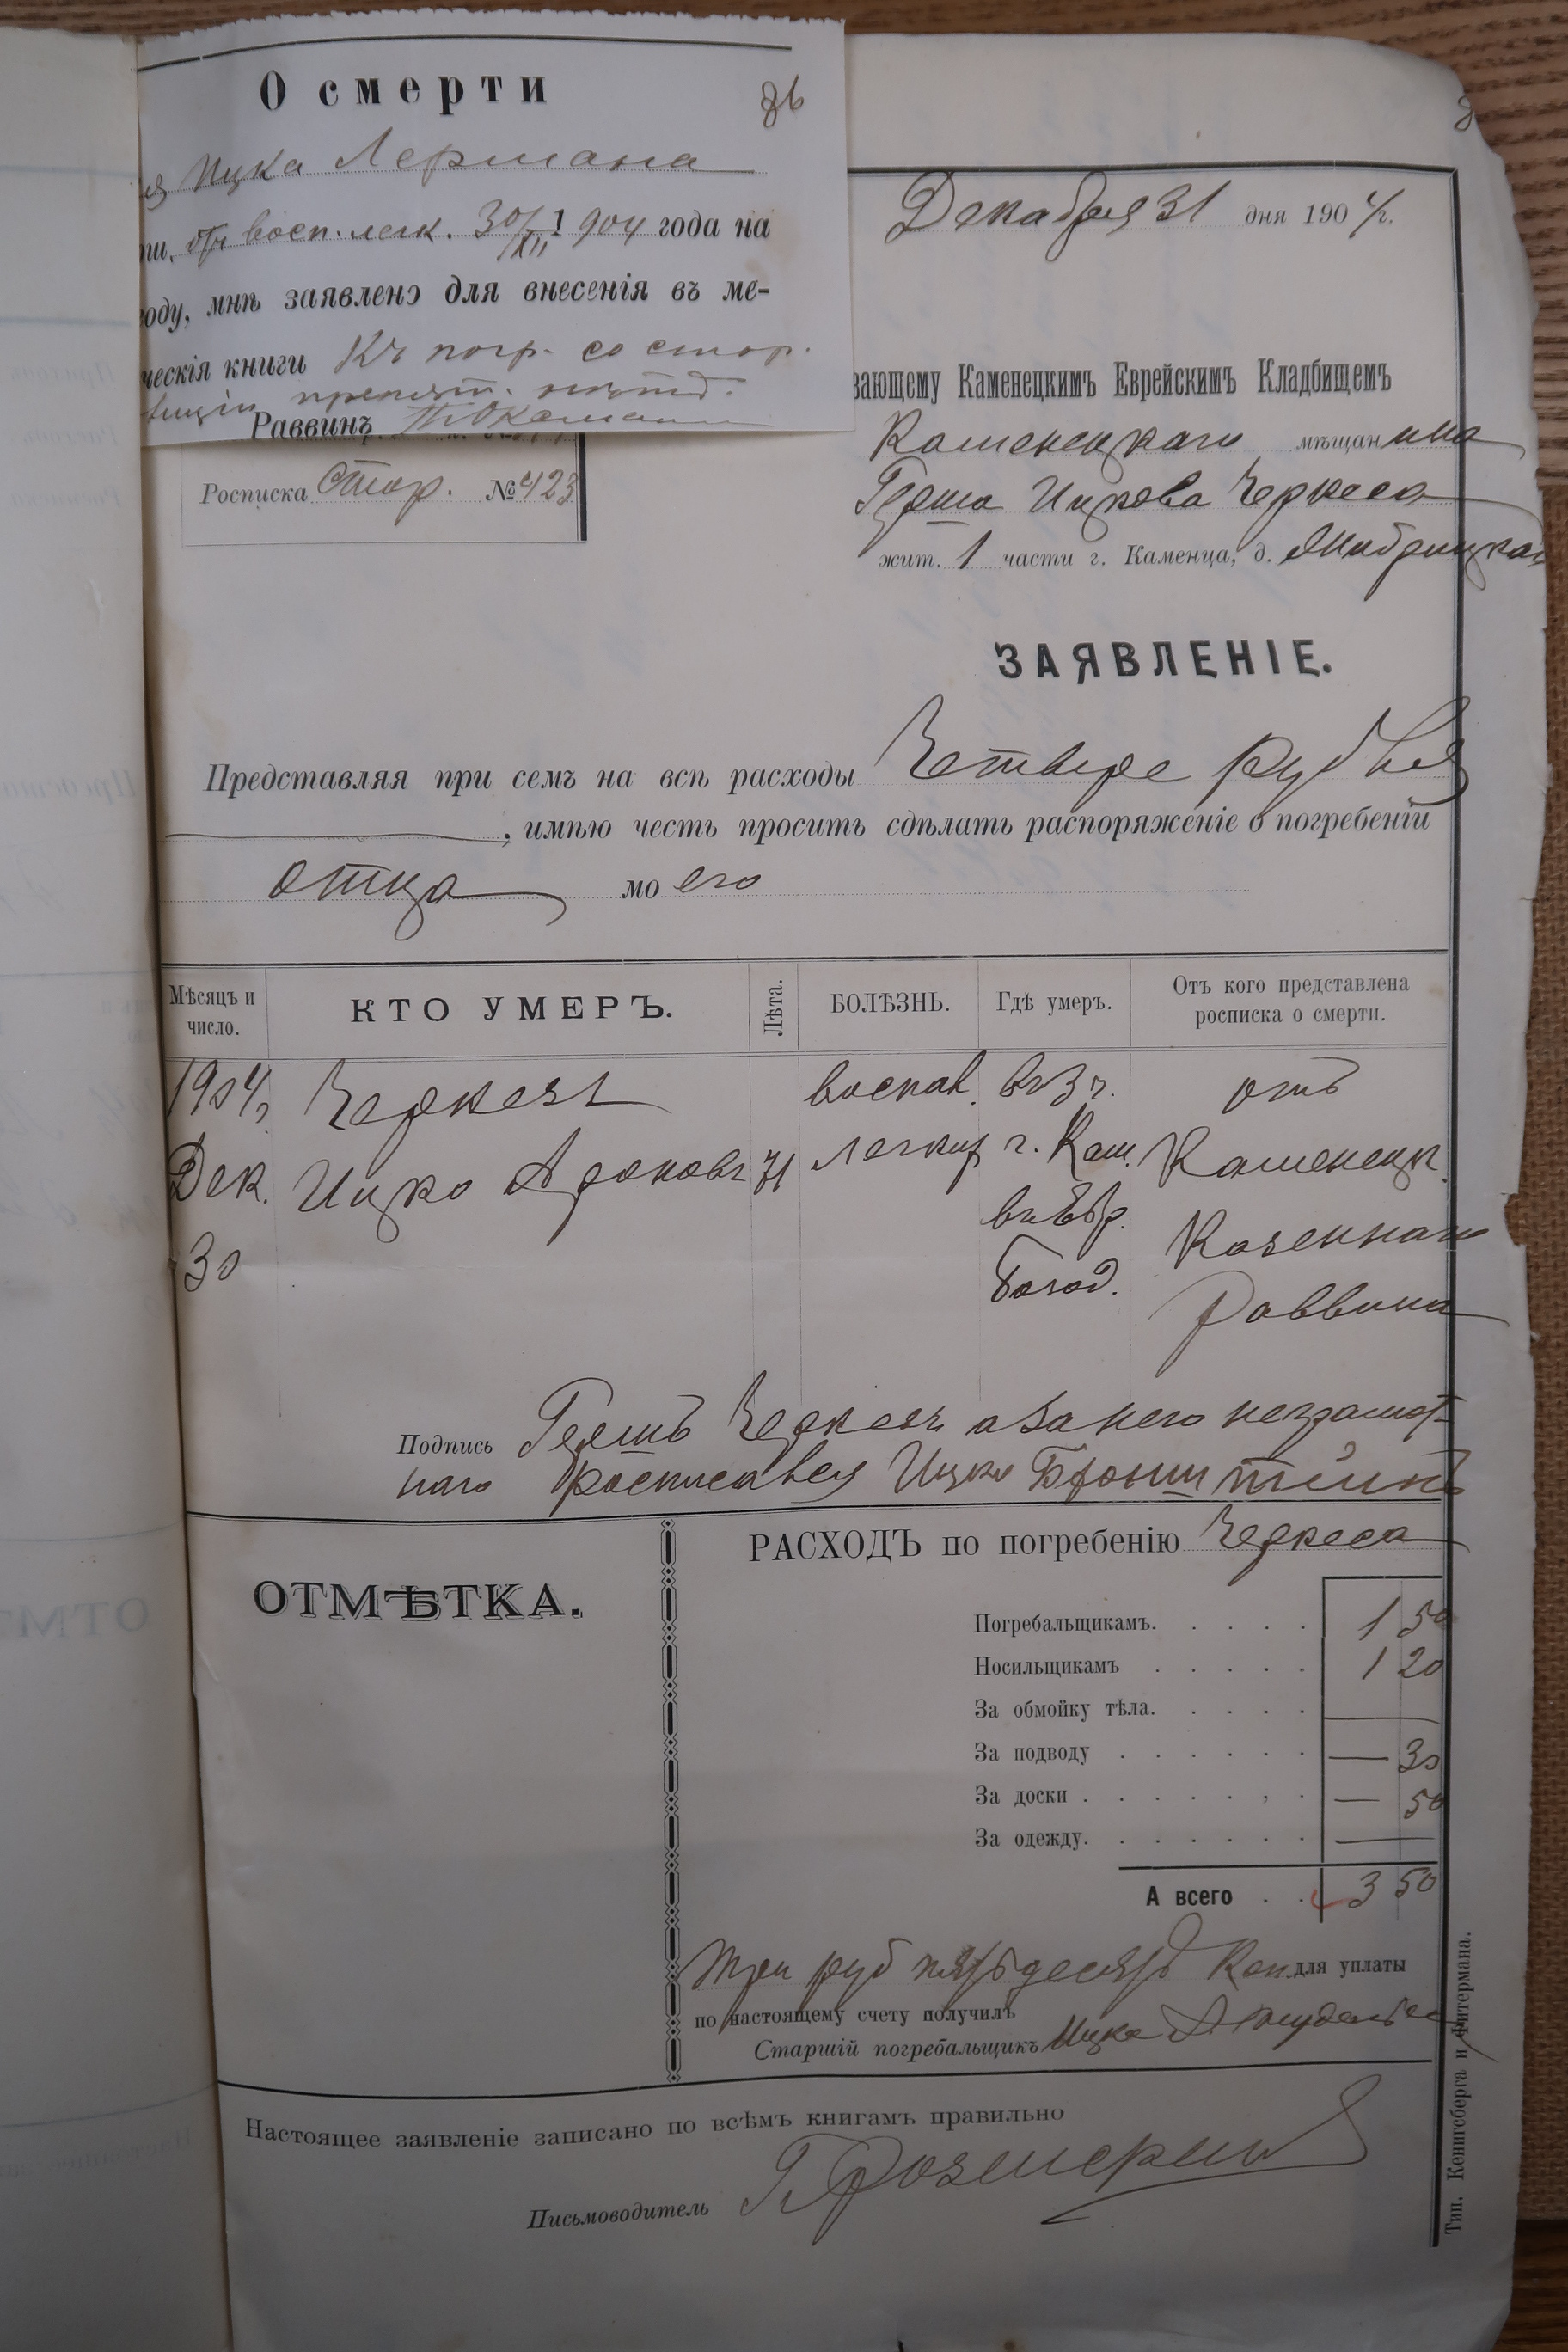 О смерти
86
Ицка Лермана
отъ восп. легк. 30/XII 1904 года на
оду, мнѣ заявлено для внесенія въ ме-
ческія книги Къ погр. со стор.
препят. нѣтъ.
Раввинъ
Росписка стор. № 423
Декабря 31 дня 1904 г.
вающему Каменецкимъ Еврейскимъ Кладбищемъ
Каменецкаго мѣщанина
Герша Ицкова Черкеса
жит. 1 части г. Каменца, д.
ЗАЯВЛЕНІЕ.
Представляя при семъ на всѣ расходы Четыре рубля
, имѣю честь просить сдѣлать распоряженіе о погребеніи
отца моего
Мѣсяцъ и число. КТО УМЕРЪ. Лѣта. БОЛѢЗНЬ. Гдѣ умеръ. Отъ кого представлена росписка о смерти.
1904, Черкесъ воспал. въ 3 ч. отъ
Дек. Ицко Ароновъ 71 легкир г. Кам. Каменецк.
30 въ Евр. Казеннаго
Богад. Раввина
Подпись Гершъ Черкесъ а за него неграмот-
наго росписався Ицко Бронштейнъ
ОТМѢТКА.
РАСХОДЪ по погребенію Черкеса
Погребальщикамъ. 1 50
Носильщикамъ 1 20
За обмойку тѣла. —
За подводу — 30
За доски — 50
За одежду. —
А всего 3 50
Три руб пятьдесятъ Коп. для уплаты
по настоящему счету получилъ
Старшій погребальщикъ Ицко
Настоящее заявленіе записано по всѣмъ книгамъ правильно
Письмоводитель
Тип. Кенигсберга и Литермана.